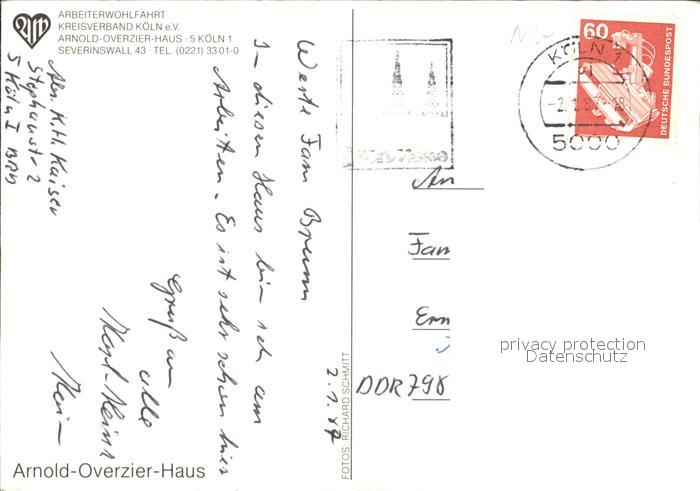 ARBEITERWOHLFAHRT
KREISVERBAND KÖLN e.V.
ARNOLD-OVERZIER-HAUS · 5 KÖLN 1
SEVERINSWALL 43 · TEL. (0221) 33 01-0
Abs. K.H. Kaiser
Stephanstr 2
5 Köln 1 BRD
Werte Fam Bremm
In diesem Haus bin ich am
Arbeiten. Es ist sehr schön hier
Gruß an
alle
Karl-Heinz
2.1.87
Arnold-Overzier-Haus
FOTOS RICHARD SCHMITT
60
DEUTSCHE BUNDESPOST
KÖLN 1
5000
An
Fam
Ern
DDR 798
privacy protection
Datenschutz